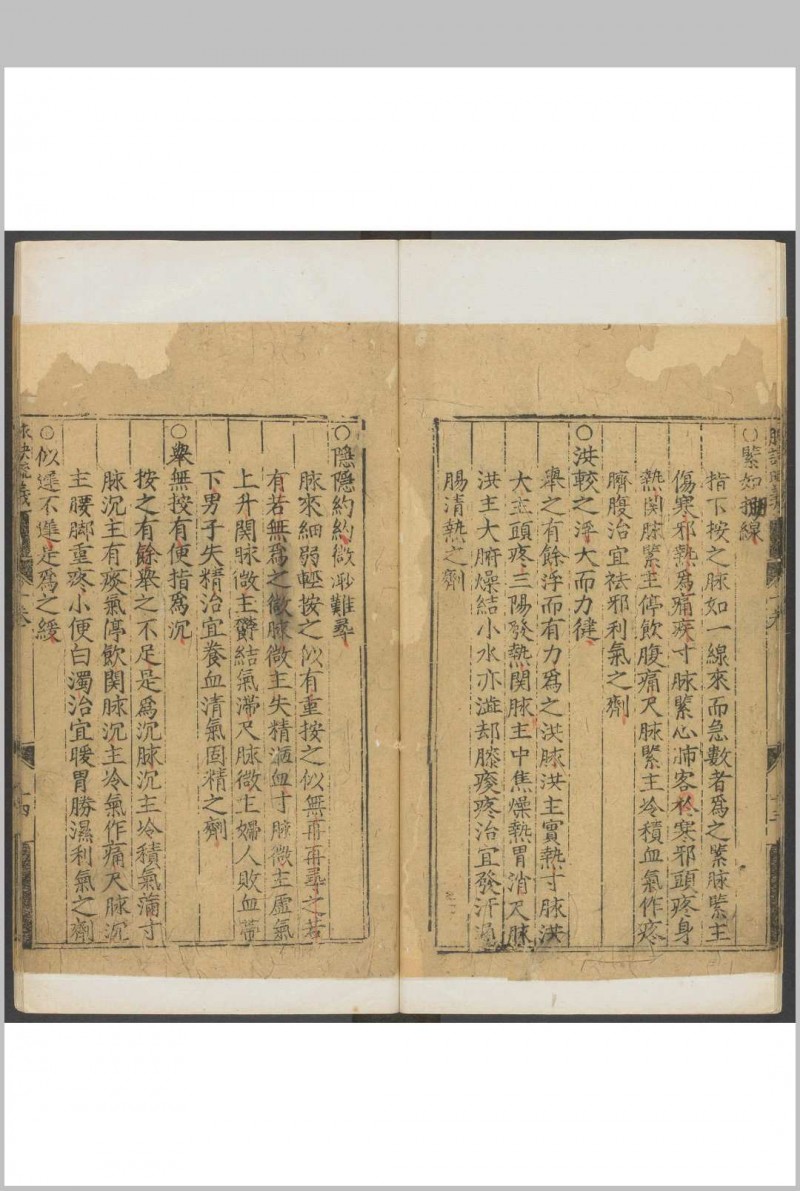 ○緊如搊線
指下按之脉如一線來而急數者爲之緊脉緊主
傷寒邪熱爲痛疾寸脉緊心肺客於寒邪頭疼身
熱関脉緊主停飲腹痛尺脉緊主冷積血氣作疼
臍腹治宜祛邪利氣之劑
○洪較之浮大而力徤
舉之有餘浮而有力爲之洪脉洪主實熱寸脉洪
大主頭疼三陽發熱関脉主中焦燥熱胃消尺脉
洪主大腑燥結小水亦澁却膝痠疼治宜發汗
腸清熱之劑
○隠隠約約微渺難尋
脉來細弱輕按之似有重按之似無再再尋之若
有若無爲之微脉微主失精漏血寸脉微主虛氣
上升関脉微主欝結氣滯尺脉微主婦人敗血帶
下男子失精治宜養血清氣固精之劑
○舉無按有便指爲沉
按之有餘舉之不足是爲沉脉沉主冷積氣蒲寸
脉沉主有痰氣停飲関脉沉主冷氣作痛尺脉沉
主腰脚重疼小便白濁治宜暖胃勝濕利氣之劑
○似遲不進是爲之緩